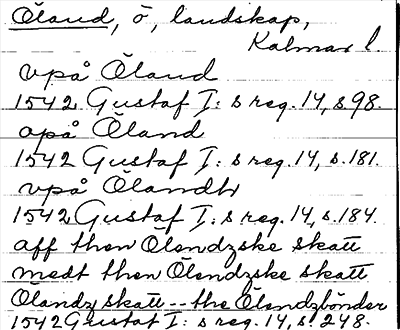 Öland, ö, landskap,
Kalmar l.
vpå Öland
1542 Gustaf I:s reg. 14, s. 98.
opå Öland
1542 Gustaf I:s reg. 14, s. 181.
vpå Ölandh
1542 Gustaf I:s reg. 14, s. 184.
aff then Ölendzske skatt
medt then Ölendzske skatt
Ölandz skatt -- the Ölendzbönder
1542 Gustaf I:s reg. 14, s. 248.